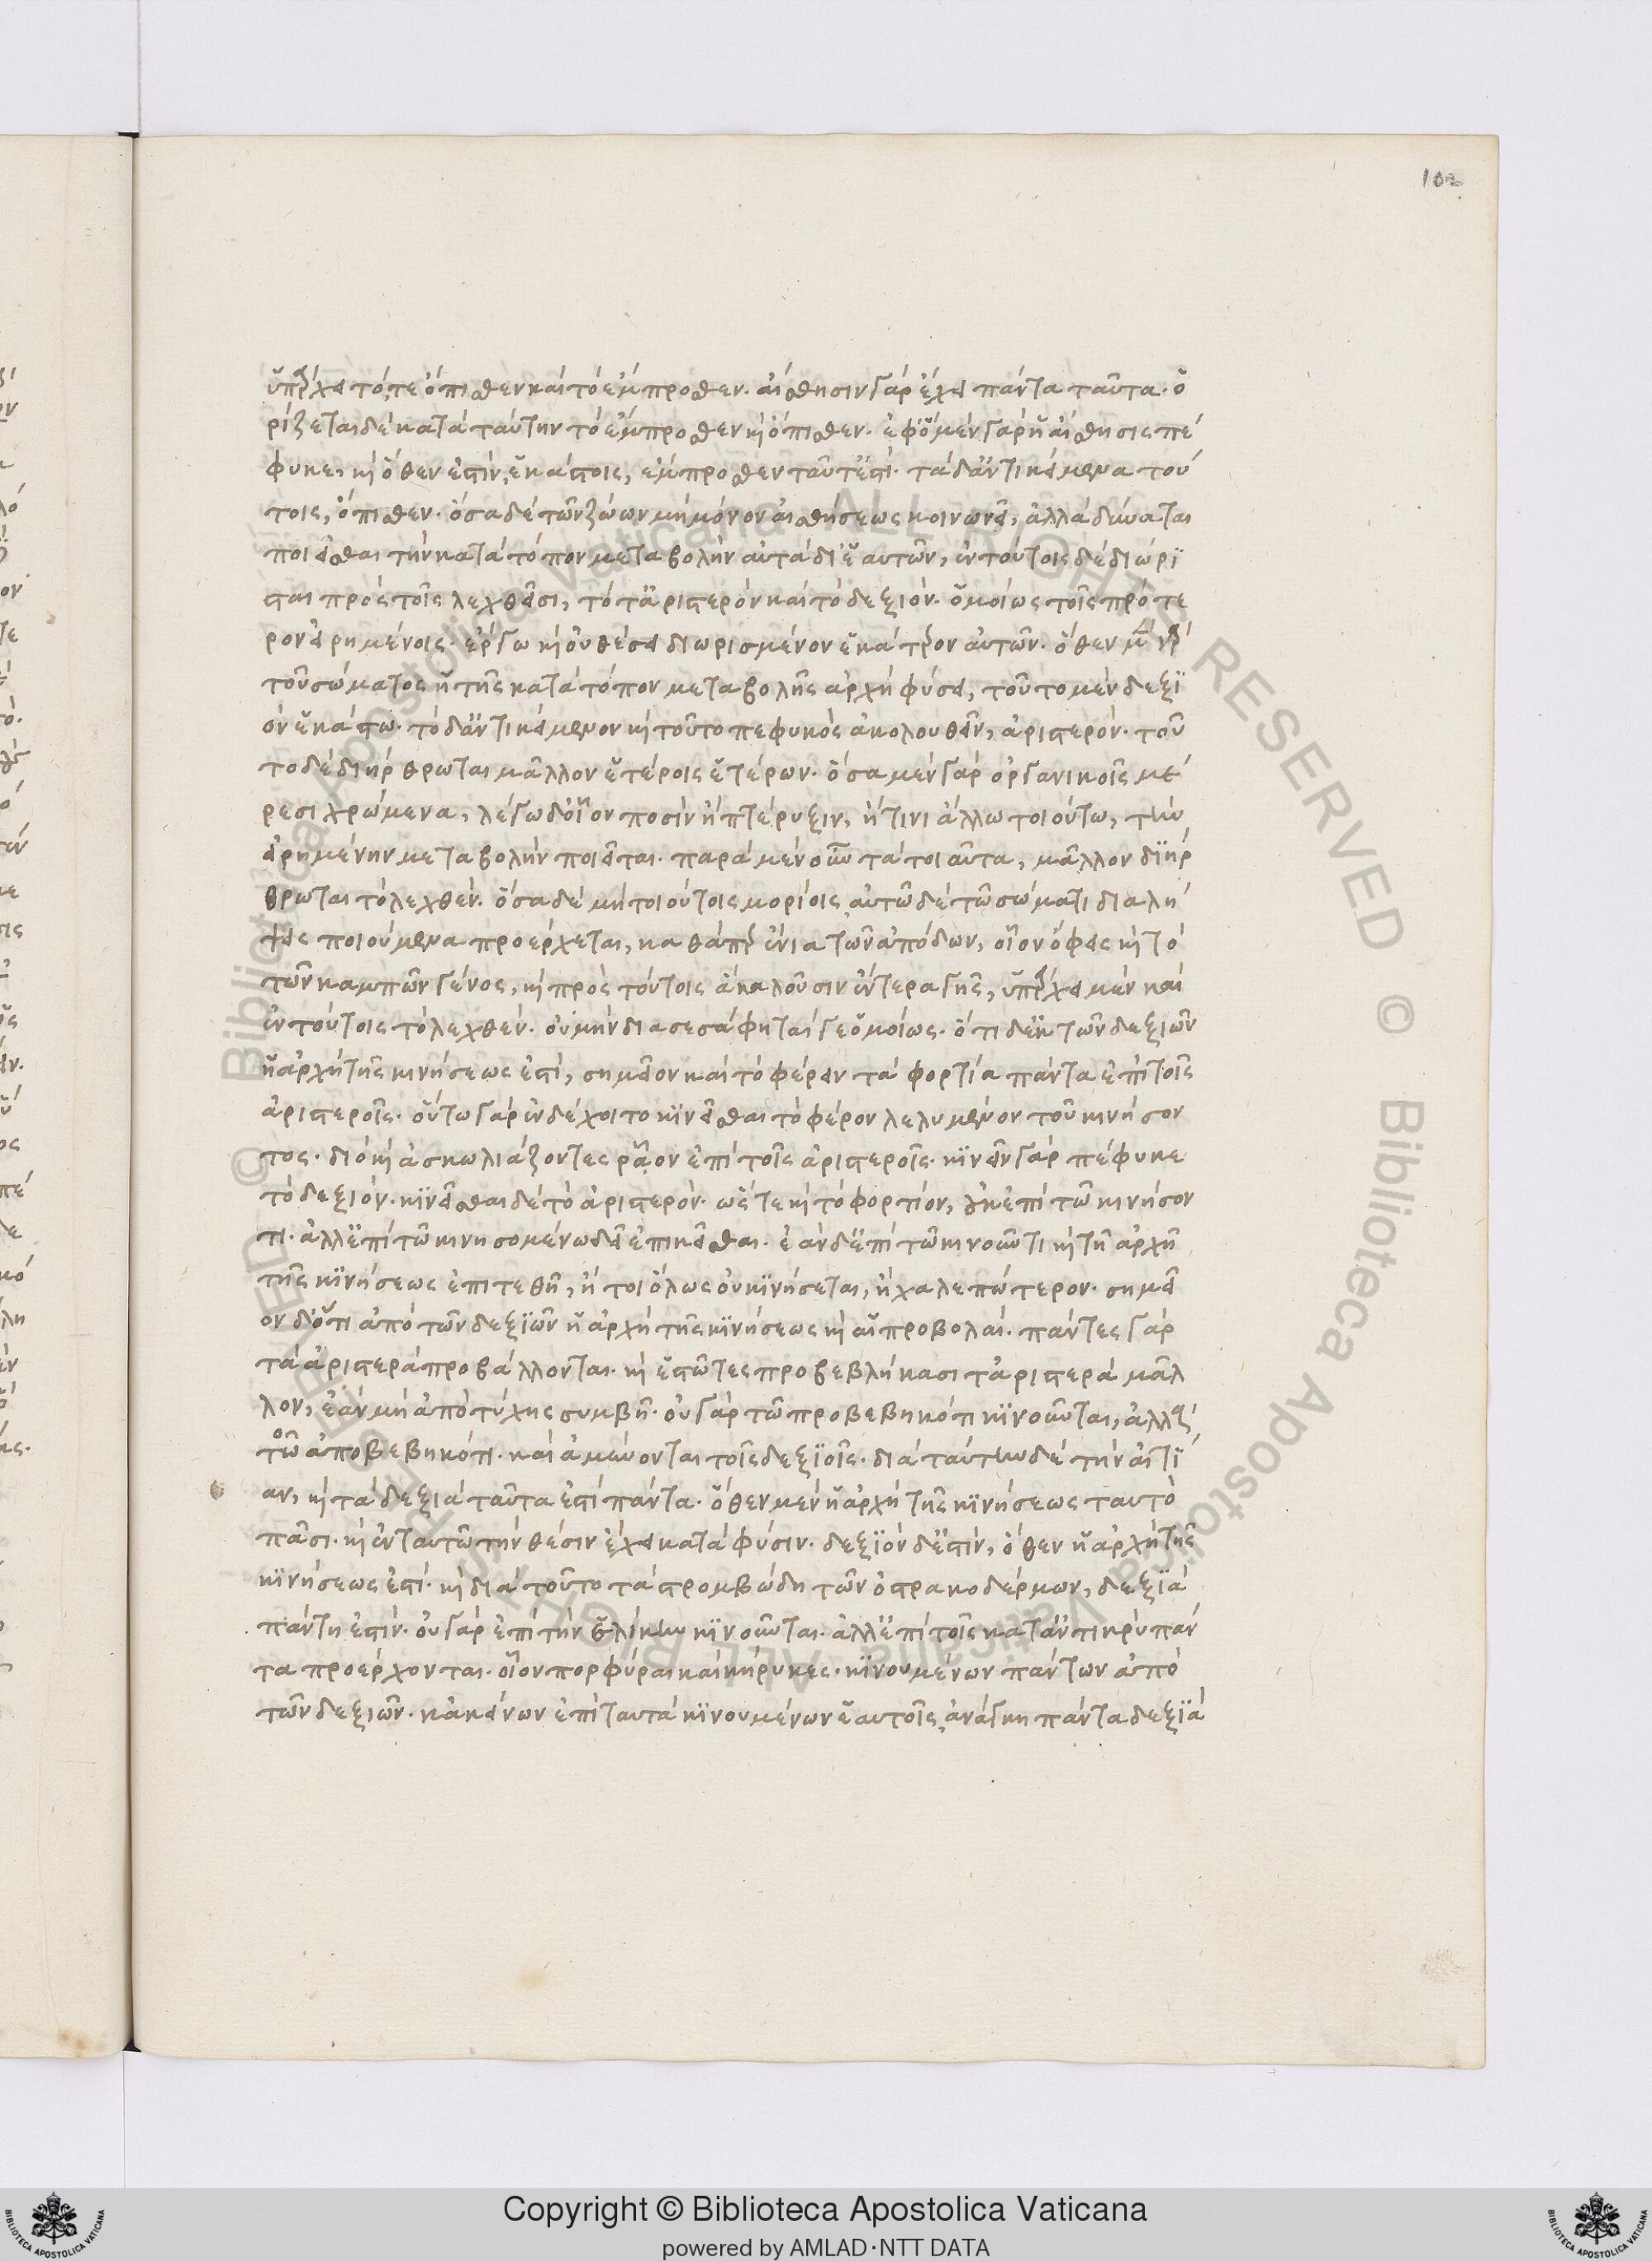 102
ὑπάρχει τό, τε ὄπισθεν καὶ τὸ ἔμπροσθεν. αἴσθησιν γὰρ ἔχει πάντα ταῦτα. ὁ
ρίζεται δὲ κατὰ ταύτην τὸ ἔμπροσθεν καὶ ὄπισθεν. ἐφ' ὃ μὲν γὰρ ἡ αἴσθησις πέ
φυκε, καὶ ὅθεν ἐστὶν ἑκάστοις, ἔμπροσθεν ταῦτ' ἐστί. τὰ δ' ἀντικείμενα τού
τοις, ὄπισθεν. ὅσα δὲ τῶν ζώων μὴ μόνον αἰσθήσεως κοινωνεῖ, ἀλλὰ δύναται
ποιεῖσθαι τὴν κατὰ τόπον μεταβολὴν αὐτὰ δι' ἑαυτῶν, ἐν τούτοις δὲ διώρι
σται πρὸς τοῖς λεχθεῖσι, τό τ' ἀριστερὸν καὶ τὸ δεξιόν. ὁμοίως τοῖς πρότε
ρον εἰρημένοις. ἔργω καὶ οὐ θέσει διωρισμένον ἑκάτερον αὐτῶν. ὅθεν μὲν γάρ
τοῦ σώματος ἡ τῆς κατὰ τόπον μεταβολῆς ἀρχὴ φύσει, τοῦτο μὲν δεξι
ὸν ἑκάστω. τὸ δ' ἀντικείμενον καὶ τοῦτο πεφυκὸς ἀκολουθεῖν, ἀριστερόν. τοῦ
το δὲ διήρθρωται μᾶλλον ἑτέροις ἑτέρων. ὅσα μὲν γὰρ ὀργανικοῖς μέ
ρεσι χρώμενα, λέγω δ' οἷον ποσὶν ἢ πτέρυξιν, ἤ τινι ἄλλω τοιούτω, τὴν
εἰρημένην μεταβολὴν ποιεῖται. παρὰ μὲν οὖν τὰ τοιαῦτα, μᾶλλον διήρ
θρωται τὸ λεχθέν. ὅσα δὲ μὴ τοιούτοις μορίοις, αὐτῶ δὲ τῶ σώματι διαλή
ψεις ποιούμενα προέρχεται, καθάπερ ἔνια τῶν ἀπόδων, οἷον ὄφεις καὶ τὸ
τῶν καμπῶν γένος, καὶ πρὸς τούτοις ἃ καλοῦσιν ἔντερα γῆς, ὑπάρχει μὲν καὶ
ἐν τούτοις τὸ λεχθέν. οὐ μὴν διασεσάφηταί γε ὁμοίως. ὅτι δ' ἐκ τῶν δεξιῶν
ἡ ἀρχὴ τῆς κινήσεως ἐστί, σημεῖον καὶ τὸ φέρειν τὰ φορτία πάντα ἐπὶ τοῖς
ἀριστεροῖς. οὕτω γὰρ ἐνδέχοιτο κινεῖσθαι τὸ φέρον λελυμένον τοῦ κινήσον
τος. διὸ καὶ ἀσκωλιάζοντες ῥᾶον ἐπὶ τοῖς ἀριστεροῖς. κινεῖν γὰρ πέφυκε
τὸ δεξιόν. κινεῖσθαι δὲ τὸ ἀριστερόν. ὥστε καὶ τὸ φορτίον, οὐκ ἐπὶ τῶ κινήσον
τι. ἀλλ' ἐπὶ τῶ κινησομένω δεῖ ἐπικεῖσθαι. ἐὰν δ' ἐπὶ τῶ κινοῦντι καὶ τῆ ἀρχῆ
τῆς κινήσεως ἐπιτεθῆ, ἤτοι ὅλως οὐ κινήσεται, ἢ χαλεπώτερον. σημεῖ
ον δ' ὅτι ἀπὸ τῶν δεξιῶν ἡ ἀρχὴ τῆς κινήσεως καὶ αἱ προβολαί. πάντες γὰρ
τὰ ἀριστερὰ προβάλλονται. καὶ ἑστῶτες προβεβλήκασι τ' ἀριστερὰ μᾶλ
λον, ἐὰν μὴ ἀπὸ τύχης συμβῆ. οὐ γὰρ τῶ προβεβηκότι κινοῦνται, ἀλλὰ
τῶ ἀποβεβηκότι. καὶ ἀμύνονται τοῖς δεξιοῖς. διὰ ταύτην δὲ τὴν αἰτί
αν, καὶ τὰ δεξιὰ ταῦτα ἐστὶ πάντα. ὅθεν μὲν ἡ ἀρχὴ τῆς κινήσεως ταυτὸ
πᾶσι. καὶ ἐν ταυτῶ τὴν θέσιν ἔχει κατὰ φύσιν. δεξιὸν δ' ἐστίν, ὅθεν ἡ ἀρχὴ τῆς
κινήσεως ἐστί. καὶ διὰ τοῦτο τὰ στρομβώδη τῶν ὀστρακοδέρμων, δεξιὰ
πάντη ἐστίν. οὐ γὰρ ἐπὶ τὴν ἑλίκην κινοῦνται. ἀλλ' ἐπὶ τοῖς καταντικρὺ πάν
τα προέρχονται. οἷον πορφύραι καὶ κήρυκες. κινουμένων πάντων ἀπὸ
τῶν δεξιῶν. κἀκείνων ἐπὶ ταυτὰ κινουμένων ἑαυτοῖς, ἀνάγκη πάντα δεξιὰ
© Biblioteca Apostolica Vaticana ALL RIGHTS RESERVED
Copyright © Biblioteca Apostolica Vaticana
powered by AMLAD·NTT DATA
BIBLIOTECA APOSTOLICA VATICANA
BIBLIOTECA APOSTOLICA VATICANA